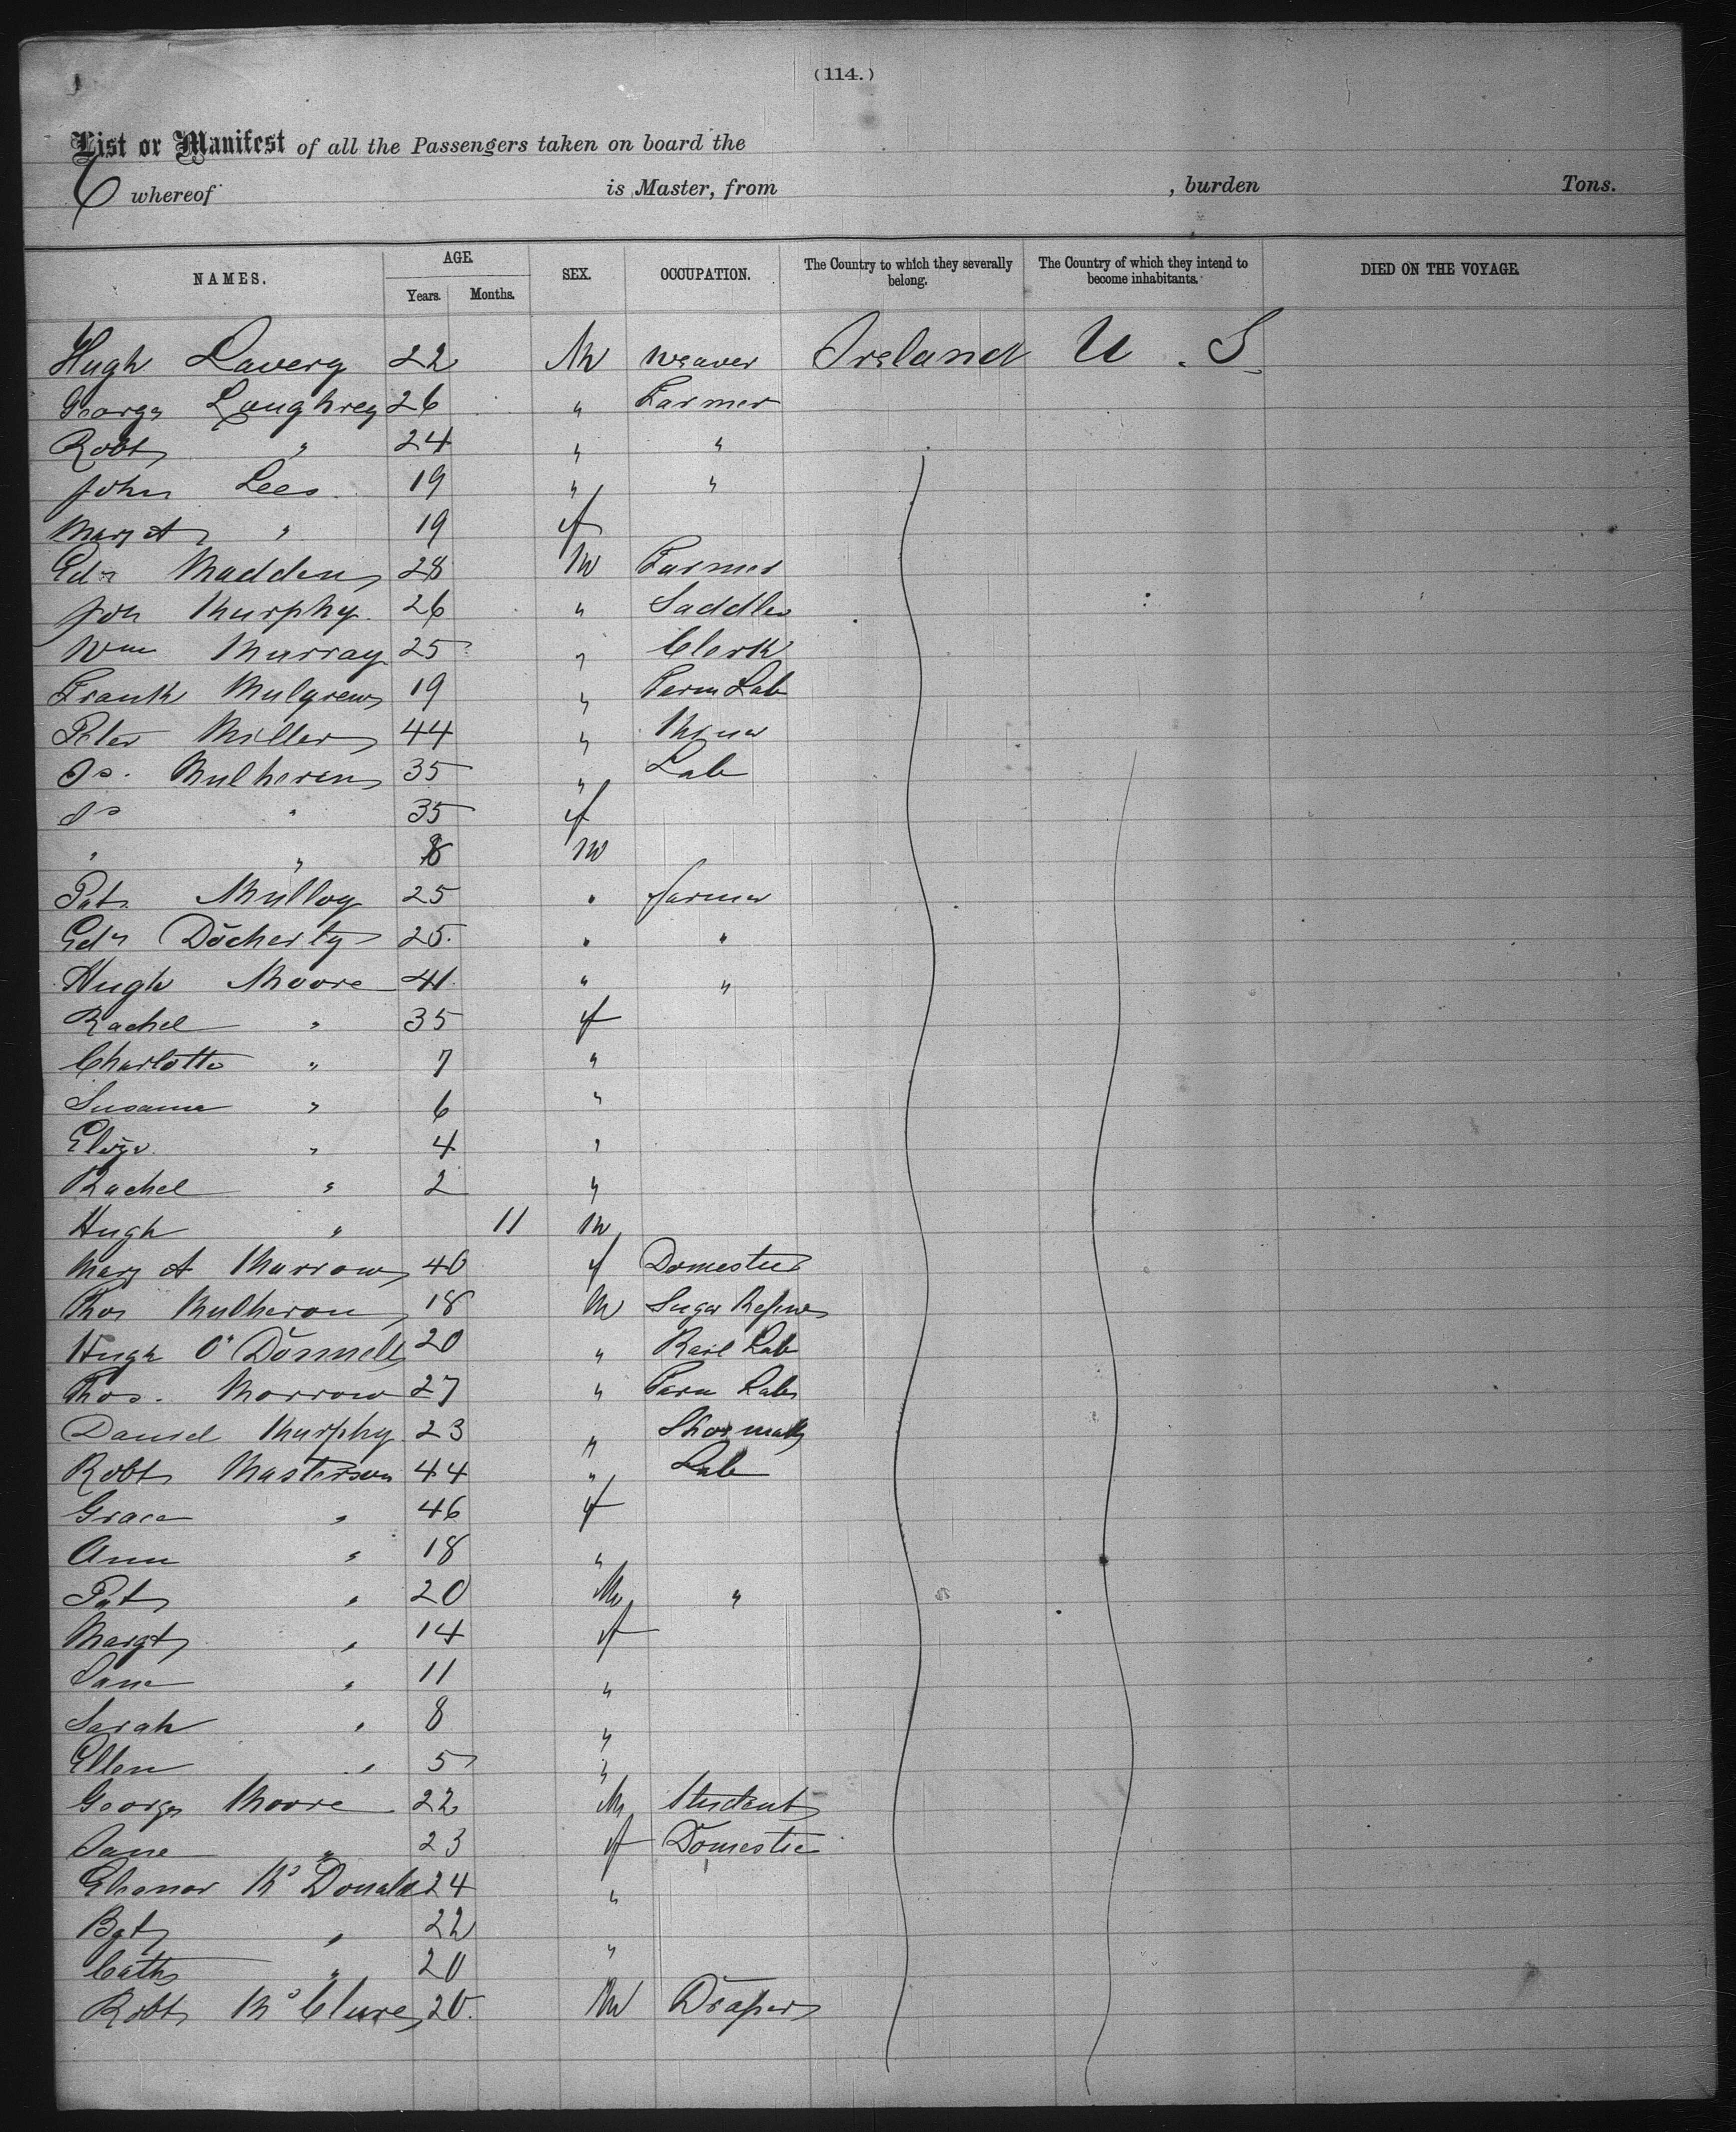 (114.)
List or Manifest of all the Passengers taken on board the
6 whereof is Master, from , burden Tons.
NAMES. AGE. Years. Months. SEX. OCCUPATION. The Country to which they severally belong. The Country of which they intend to become inhabitants. DIED ON THE VOYAGE.
Hugh Lavery 22 M Weaver Ireland U. S.
George Loughrey 26 " Farmer
Robt " 24 " "
John Lees 19 " "
Mary A " 19 f
Edn Madden 28 M Farmer
Jon Murphy 26 " Saddler
Wm Murray 25 " Clerk
Frank Mulgrew 19 " Farm Lab
Peter Miller 44 " Miner
Js. Mulheren 35 " Lab
Js " 35 f
" " 8 M
Pat. Mulloy 25 " farmer
Edn Docherty 25. " "
Hugh Moore 41 " "
Rachel " 35 f
Charlotte " 7 "
Susanna " 6 "
Eliza " 4 "
Rachel " 2 "
Hugh " 11 M
Mary A Murrow 40 f Domestic
Thos Mulheron 18 M Sugar Refiner
Hugh O'Donnell 20 " Rail Lab
Thos. Morrow 27 " Farm Lab
Daniel Murphy 23 " Shoemak
Robt Masterson 44 " Lab
Grace " 46 f
Ann " 18 "
Pat " 20 M "
Margt " 14 f
Jane " 11 "
Sarah " 8 "
Ellen " 5 "
George Moore 22 M Student
Jane " 23 f Domestic
Eleanor Mc Donald 24 "
Bgt " 22 "
Cath " 20
Robt Mc Clure 20. M Draper